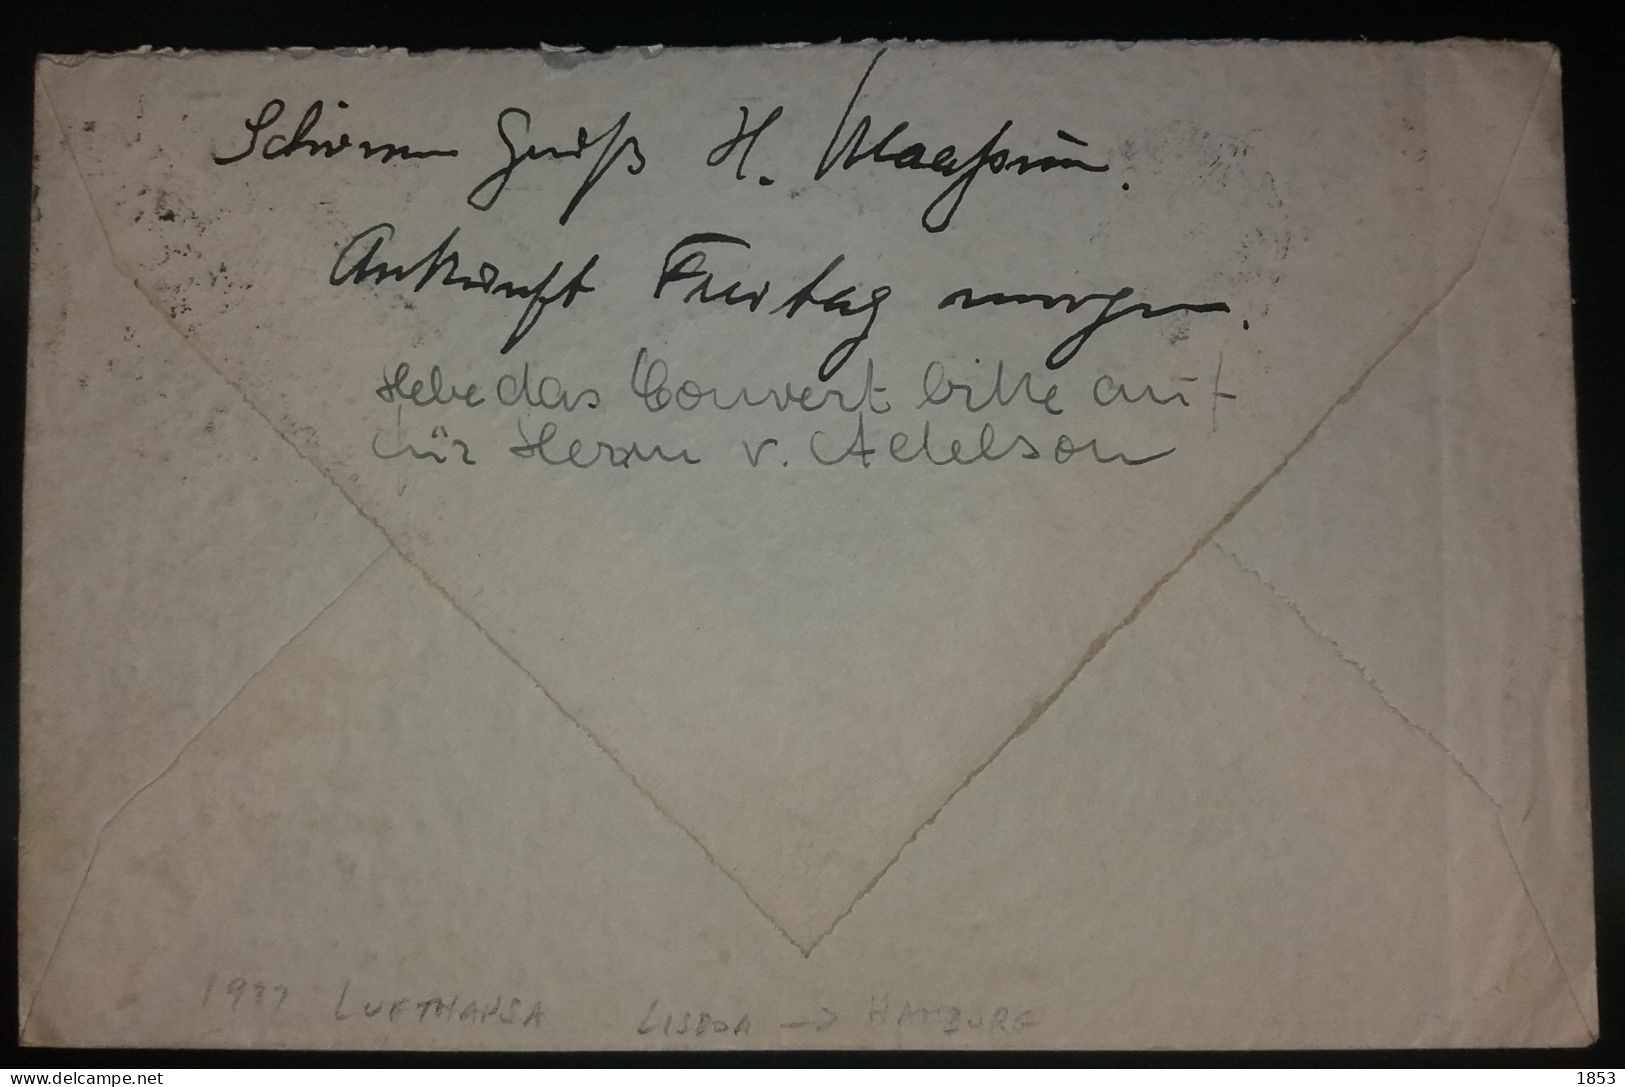 Schönen Gruß H.
Ankunft Freitag morgen.
Hebe das Couvert bitte auf
für Herrn v. Adelson
LUFTHANSA LISBOA -> HAMBURG
delcampe.net
1853